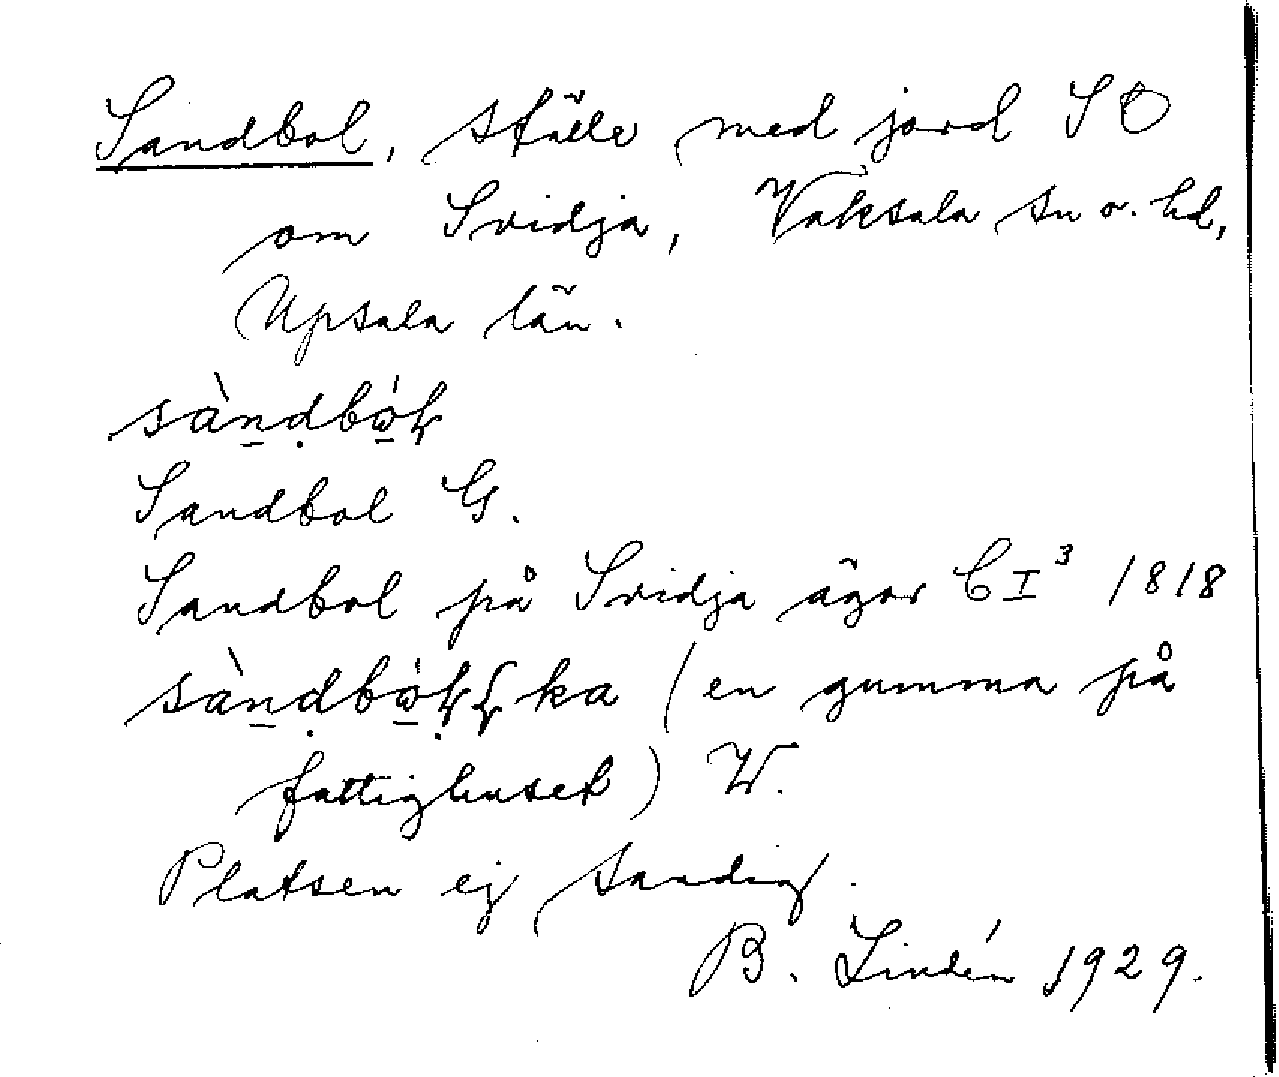 Sandbol, ställe med jord SO
om Svidja, Vaksala sn o. hd,
Upsala län.
Sandbol G.
Sandbol på Svidja ägor C I³ 1818
(en gumma på
fattighuset) W.
Platsen ej sandig.
B. Lindén 1929.